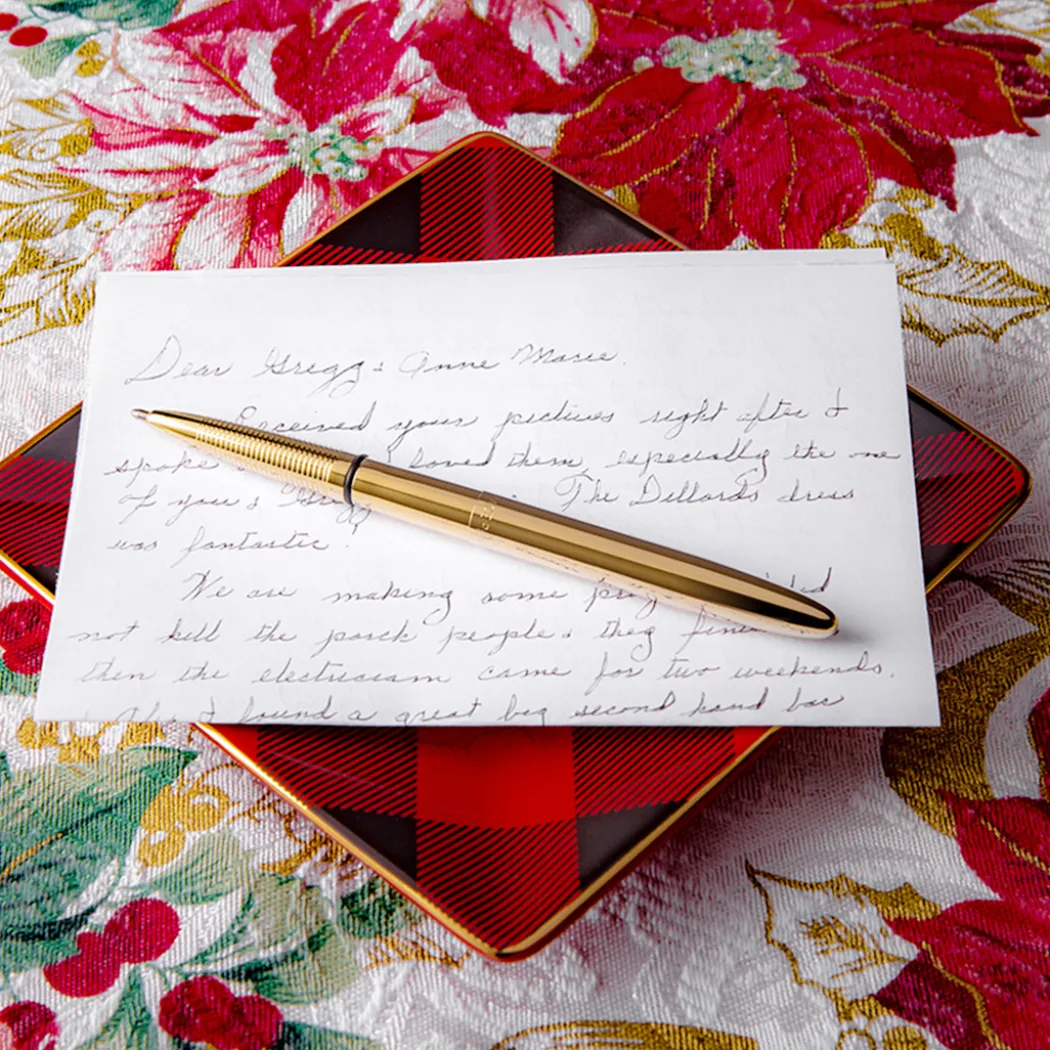 Dear Gregg & Anne Marie.
Received your pictures right after I
spoke loved them, especially the one
of you & Gregg The Dillards dress
was fantastic.
We are making some
not kill the porch people & they
then the electrician came for two weekends.
I found a great big second hand